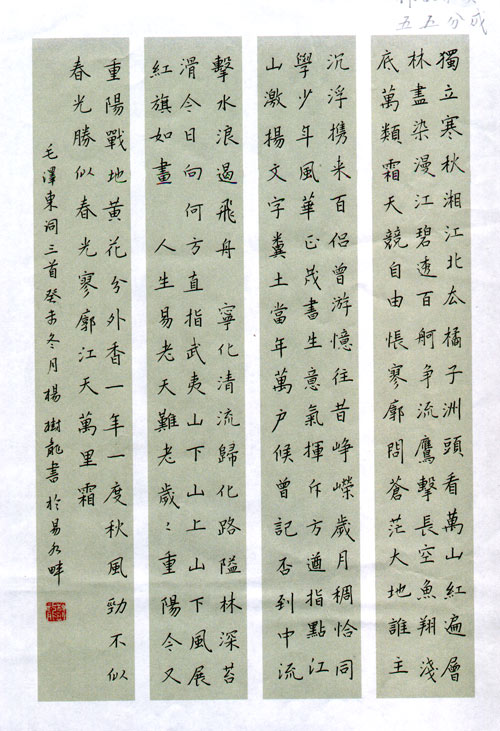 獨立寒秋湘江北去橘子洲頭看萬山紅遍層
林盡染漫江碧透百舸争流鷹擊長空魚翔淺
底萬類霜天競自由悵寥廓問蒼茫大地誰主
沉浮携来百侣曾游憶往昔峥嶸歲月稠恰同
學少年風華正茂書生意氣揮斥方遒指點江
山激揚文字糞土當年萬户候曾記否到中流
擊水浪遏飛舟 寧化清流歸化路隘林深苔
滑今日向何方直指武夷山下山上山下風展
紅旗如畫 人生易老天難老歲〻重陽今又
重陽戰地黄花分外香一年一度秋風勁不似
春光勝似春光寥廓江天萬里霜
毛澤東詞三首癸未冬月楊樹龍書於易水畔
五五分